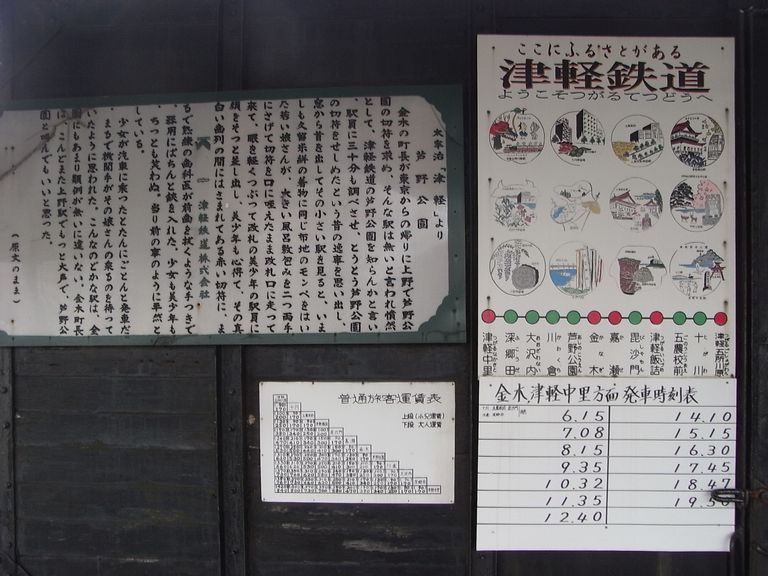 太宰治「津軽」より
芦野公園
金木の町長が東京からの帰りに上野で芦野公
園の切符を求め、そんな駅は無いと言われ憤然
として、津軽鉄道の芦野公園を知らんかと言い
、駅員に三十分も調べさせ、とうとう芦野公園
の切符をせしめたという昔の逸事を思い出し、
窓から首を出してその小さい駅を見ると、いま
しも久留米絣の着物に同じ布地のモンペをはい
た若い娘さんが、大きい風呂敷包みを二つ両手
にさげて切符を口に咥えたまま改札口に走って
来て、眼を軽くつぶって改札の美少年の駅員に
顔をそっと差し出し、美少年も心得て、その真
白い歯列の間にはさまれてある赤い切符に、ま
るで熟練の歯科医が前歯を抜くような手つきで
、器用にぱちんと鋏を入れた。少女も美少年も
、ちっとも笑わぬ。当り前の事のように平然と
している。
少女が汽車に乗ったとたんにごとんと発車だ。
まるで機関手がその娘さんの乗るのを待って
いたように思われた。こんなのどかな駅は、全
国にもあまり類例が無いに違いない。金木町長
は、こんどまた上野駅でもっと大声で、芦野公
園と叫んでもいいと思った。
(原文のまま)
津軽鉄道株式会社
ここにふるさとがある
津軽鉄道
ようこそつがるてつどうへ
津軽中里
深郷田
大沢内
川倉
芦野公園
金木
嘉瀬
毘沙門
津軽飯詰
五農校前
十川
津軽五所川原
普通旅客運賃表
上段(小児運賃)
下段 大人運賃
金木,津軽中里方面 発車時刻表
6.15 14.10
7.08 15.15
8.15 16.30
9.35 17.45
10.32 18.47
11.35
12.40